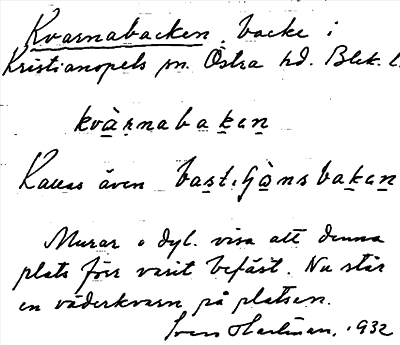 Kvarnabacken, backe i
Kristianopels sn. Östra hd. Blek. l.
kvàrnabakan
Kallas även bastijònsbakan
Murar o dyl. visa att denna
plats förr varit befäst. Nu står
en väderkvarn på platsen.
Sven Hartman, 1932